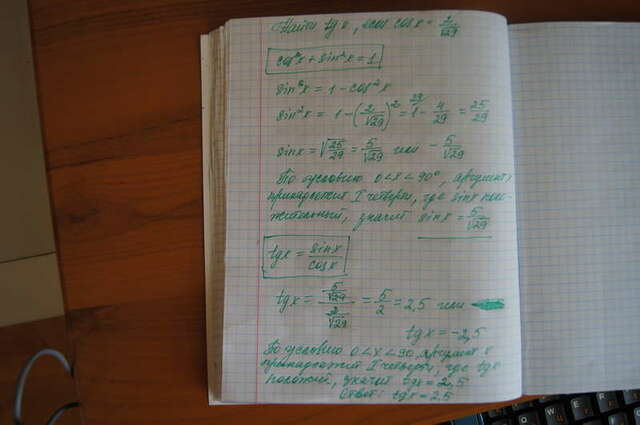 Найти tg x, если cos x = 2/√29
cos²x + sin²x = 1
sin²x = 1 - cos²x
sin²x = 1 - (2/√29)² = 1 - 4/29 = 25/29
sin x = √25/29 = 5/√29 или - 5/√29
По условию 0<x<90°, аргумент x
принадлежит I четверти, где sin x поло-
жительный, значит sin x = 5/√29
tg x = sin x / cos x
tg x = 5/√29 / 2/√29 = 5/2 = 2,5 или
tg x = -2,5
По условию 0<x<90, аргумент x
принадлежит I четверти, где tg x
положит, значит tg x = 2,5
Ответ: tg x = 2,5